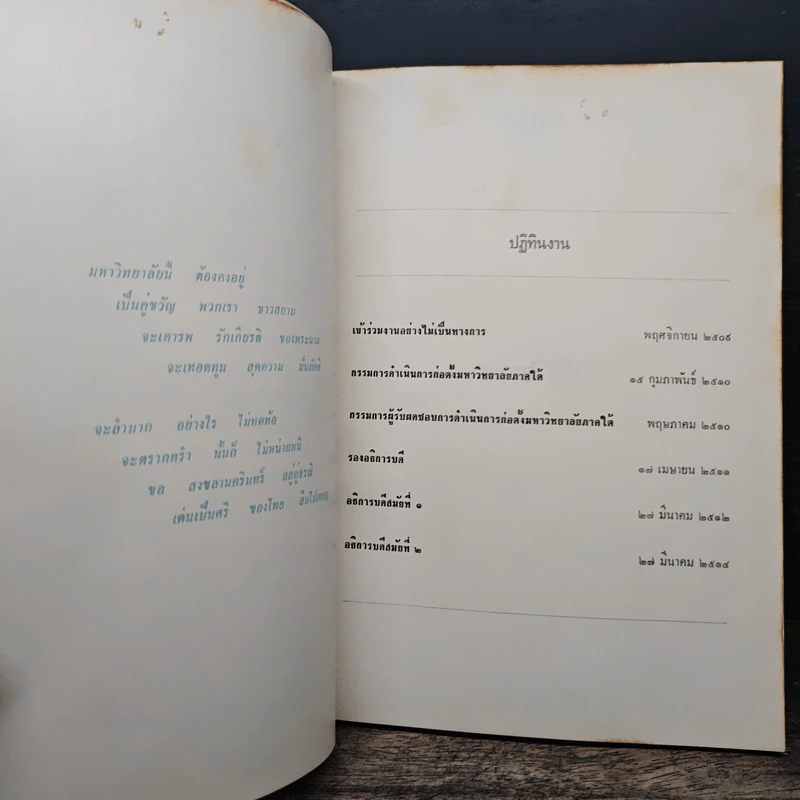 มหาวิทยาลัยนี้ ต้องคงอยู่
เป็นคู่ขวัญ พวกเรา ชาวสยาม
จะเคารพ รักเกียรติ ของพระนาม
จะเทอดทูน สุดความ ภักดี
จะลำบาก อย่างไร ไม่ทดท้อ
จะตรากตรำ นั้นก็ ไม่หน่ายหนี
ขอ สงขลานครินทร์ อยู่คู่ธรณี
เด่นเป็นศรี ของไทย
ปฏิทินงาน
เข้าร่วมงานอย่างไม่เป็นทางการ พฤศจิกายน ๒๕๐๙
กรรมการดำเนินการก่อตั้งมหาวิทยาลัยภาคใต้ ๑๕ กุมภาพันธ์ ๒๕๑๐
กรรมการผู้รับผิดชอบการดำเนินการก่อตั้งมหาวิทยาลัยภาคใต้ พฤษภาคม ๒๕๑๐
รองอธิการบดี ๑๗ เมษายน ๒๕๑๑
อธิการบดีสมัยที่ ๑ ๒๗ มีนาคม ๒๕๑๒
อธิการบดีสมัยที่ ๒ ๒๗ มีนาคม ๒๕๑๔